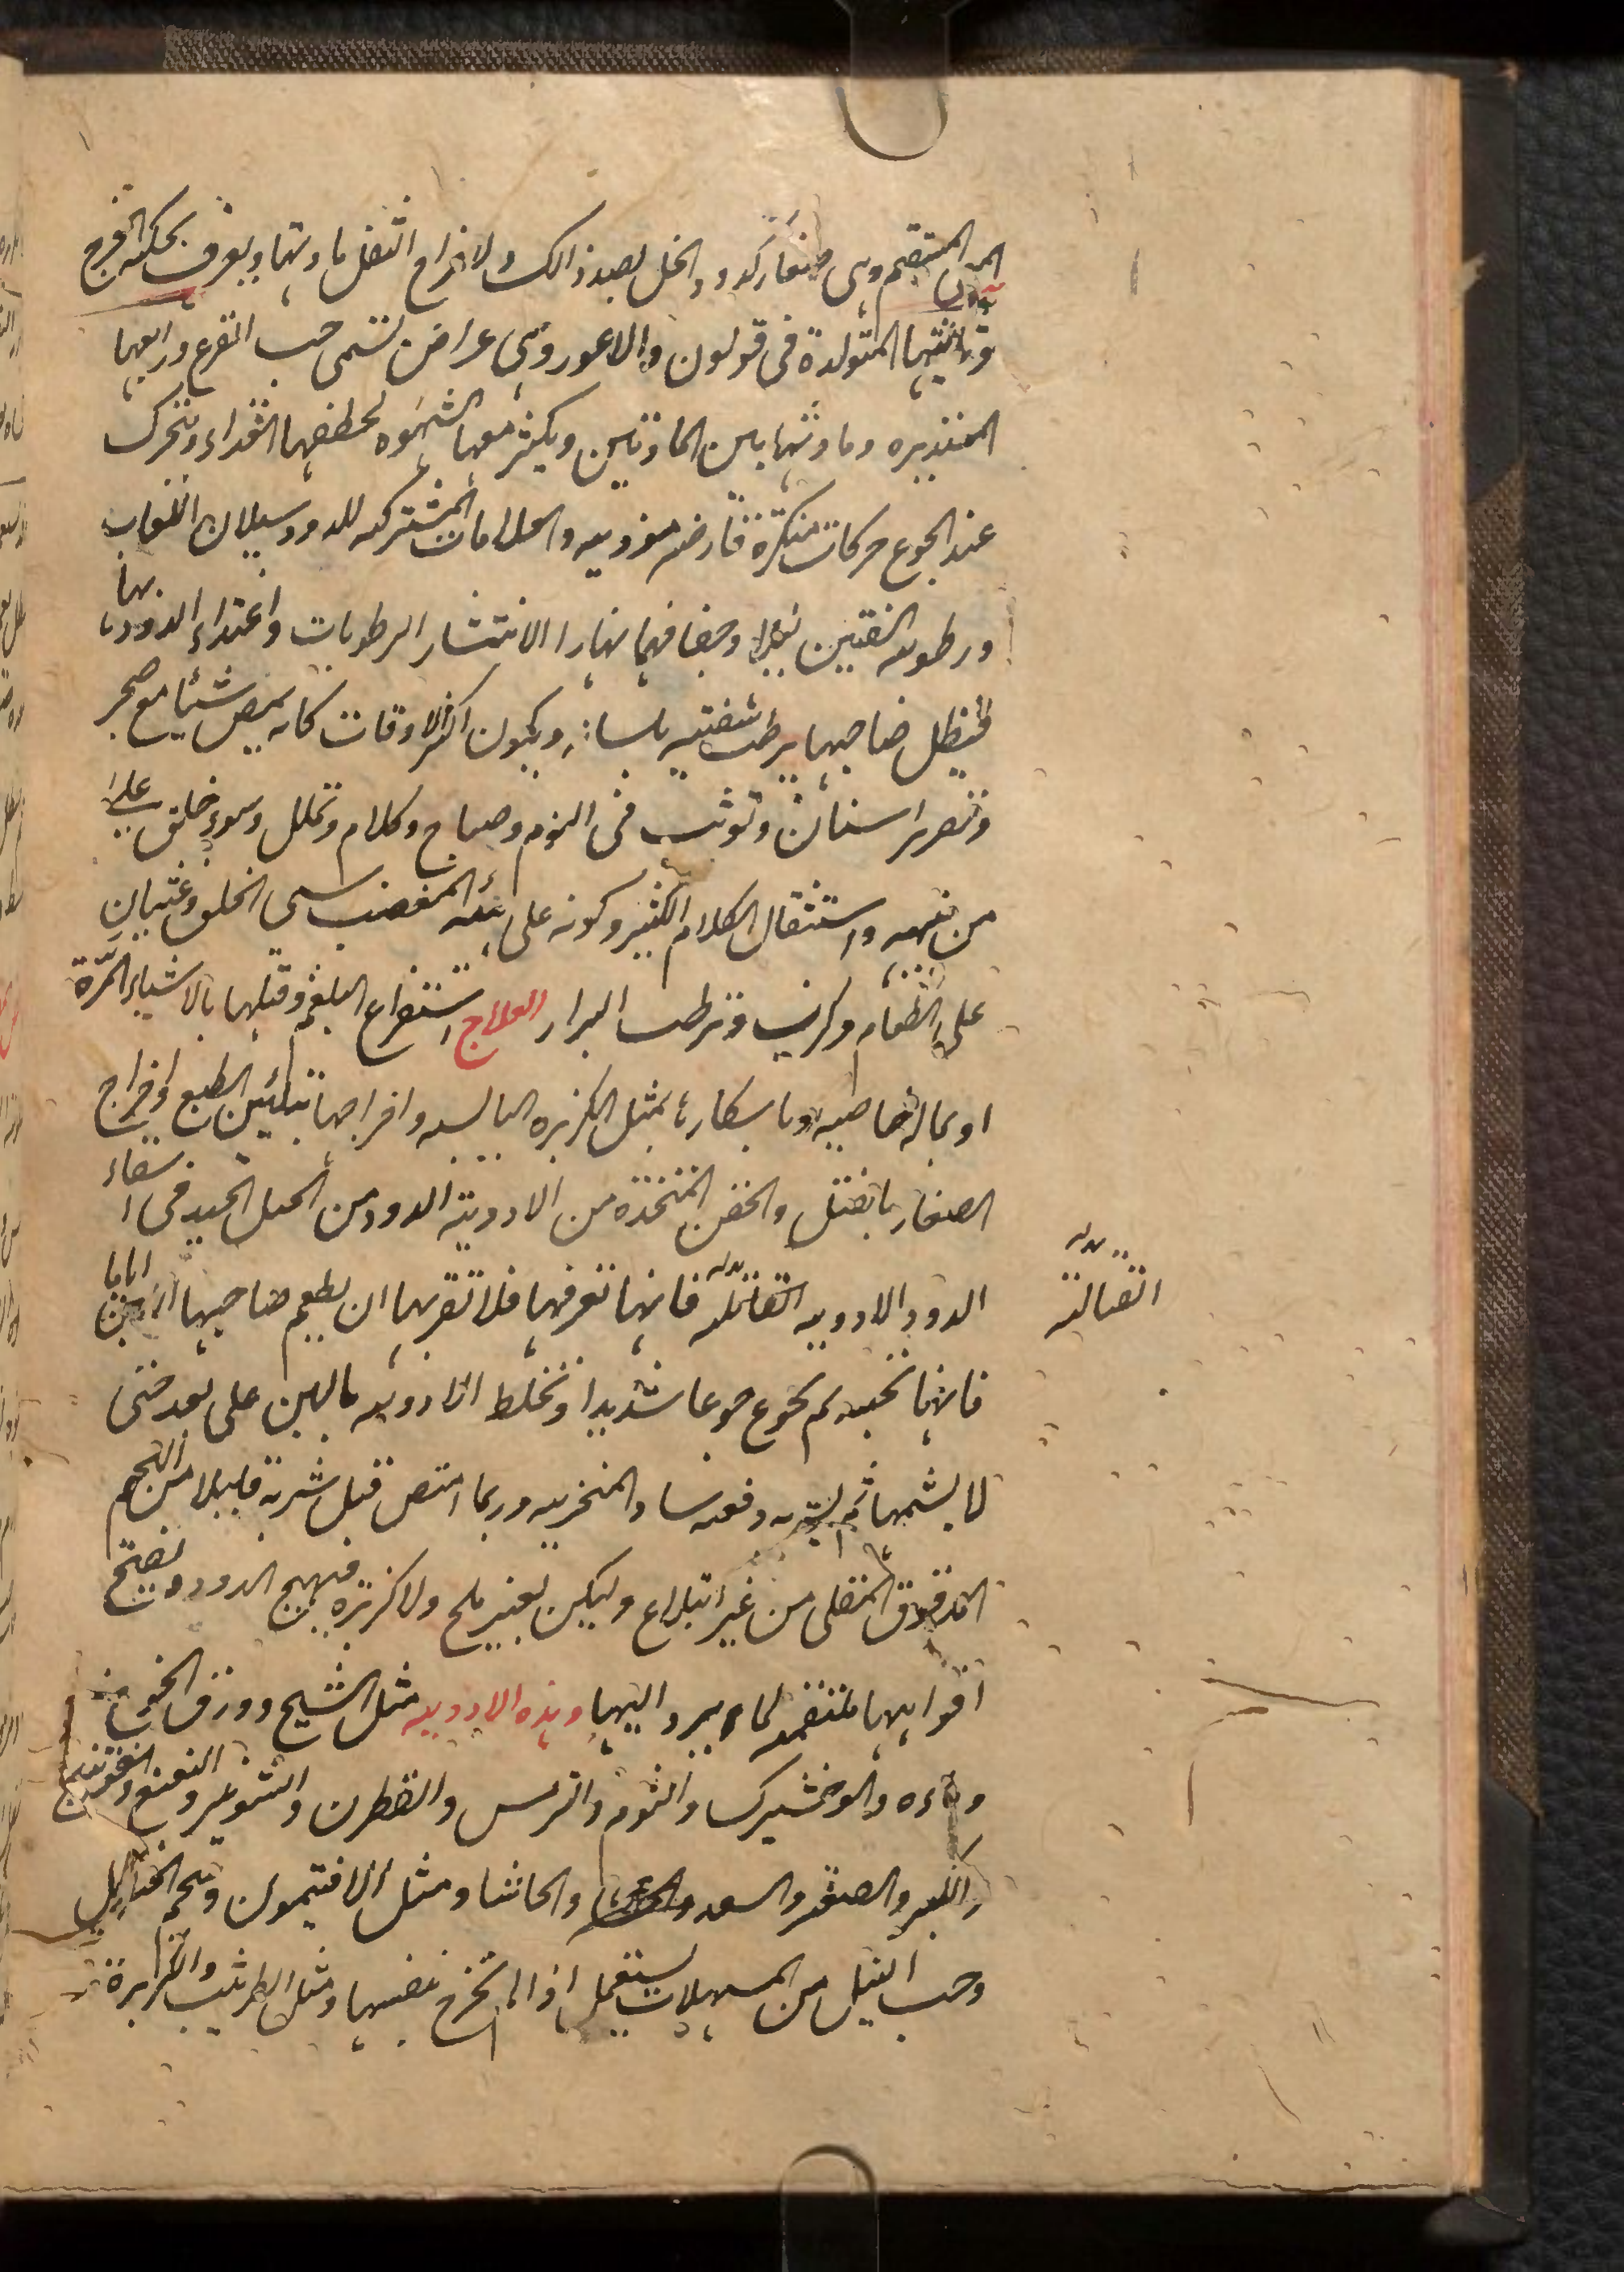 المستقيم وهى صغار كدود الخل لصد ذالك ولاخراج الثفل مادتها ويعرف بحكة الفرج
وثالثيتها المتولدة فى قولون والاعور وهى عراض تسمى حب القرع ورابعها
المستديره ومادتها بين المادتين ويكثر معها الشهوه لخطفها الغذاء وتتحرك
عند الجوع حركات منكرة قارضه موذيه والعلامات المشتركه للدود سيلان اللعاب
ورطوبه الشفتين ليلا وجفافهما نهارا لانتشار الرطوبات واغتذاء الدود بها
فيظل صاحبها يرطب شفتيه بلسانه ويكون اكثر الاوقات كانه يمص شيئا مع ضجر
وتصرير اسنان وتوثب فى النوم وصياح وكلام وتململ وسوء خلق على
من نبهه واستثقال الكلام الكثير وكونه على هيئه المغضب سئ الخلق وغثيان
على الطعام وكرب وترطب البراز العلاج استفراغ البلغم وقتلها بالاشياء المرّة
او بماله خاصيه وباسكارها بمثل الكزبره اليابسه واخراجها بتليين الطبع واخراج
الصغار بالفتل والحقن المتخذة من الادوية الدود من الحيل الجيد فى اسقاء
الدود الادويه القاتله فانها تعرفها فلا تقربها ان يطعم صاحبها اللبن اياما
فانها تحبه ثم يجوع جوعا شديدا وتخلط الادويه باللبن على بعد حتى
لا يشمها ثم يشربه دفعه ساد المنخريه وربما امتص قبل شربه قليلا من اللحم
المدقوق المقلى من غير ابتلاع وليكن بغير ملح ولا كزبره فيهيج الدود وتفتح
افواهها ملتقمه لما يرد اليها وهذه الادويه مثل الشيح وورق الخوخ
وماءه والوخشيرك والثوم والترس والقطرن والشونيز والنعنع والفوتنج
والصعتر والسعد والحاشا ومثل الافتيمون وشحم الحنظل
وحب النيل من المسهلات يستعمل اذا لم تخرج بنفسها ومثل الطرثيث والكزبرة
القتالة